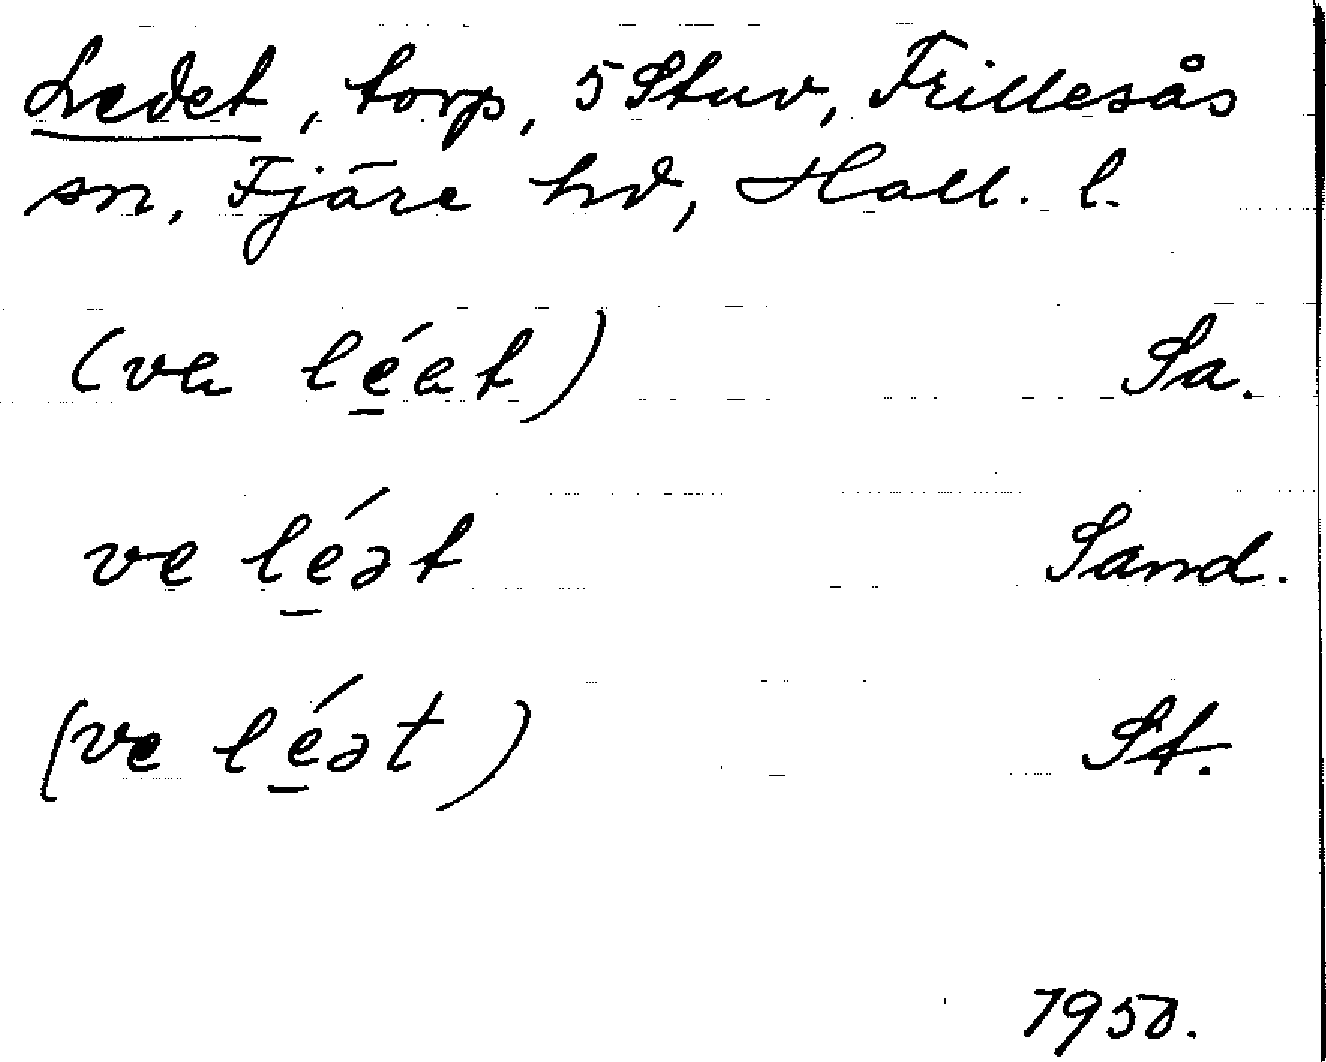 Ledet, torp, 5 Stuv, Frillesås
sn, Fjäre hd, Hall. l.
(va lé̠at) Sa.
ve lé̠ət Sand.
(ve lé̠ət) St.
1950.